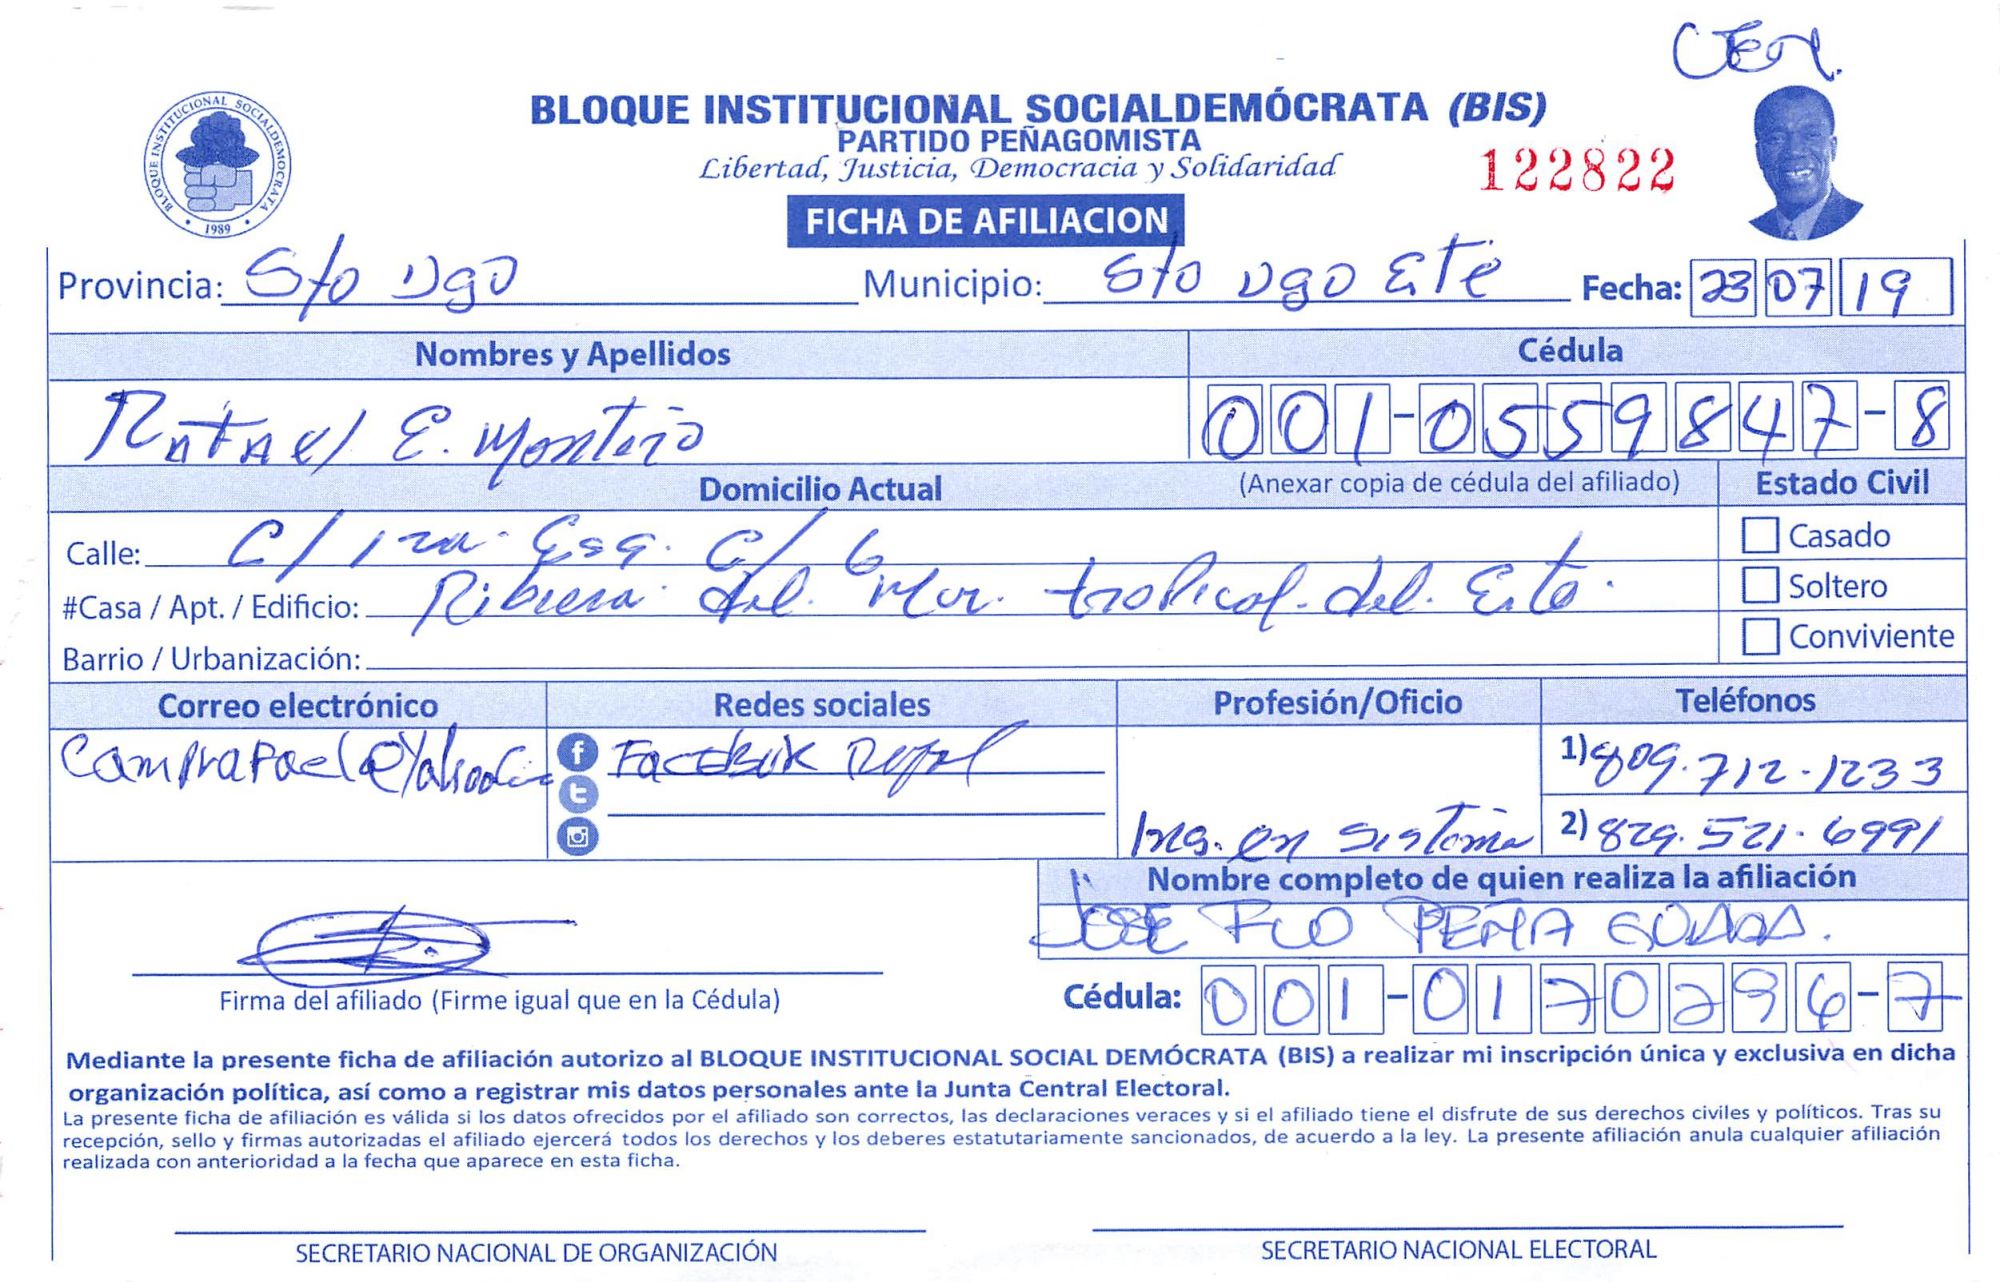 CEN.
BLOQUE INSTITUCIONAL SOCIALDEMOCRATA
1989
BLOQUE INSTITUCIONAL SOCIALDEMÓCRATA (BIS)
PARTIDO PEÑAGOMISTA
Libertad, Justicia, Democracia y Solidaridad
122822
FICHA DE AFILIACION
Provincia: Sto Dgo Municipio: Sto Dgo Este Fecha: 23 07 19
Nombres y Apellidos Cédula
Rafael E. Montero 001-0559847-8
Domicilio Actual (Anexar copia de cédula del afiliado) Estado Civil
Calle: C/ 1ra. Esq. C/ 6 Casado
#Casa / Apt. / Edificio: Ribiera del Mar. tropical. del. Este. Soltero
Barrio / Urbanización: Conviviente
Correo electrónico Redes sociales Profesión/Oficio Teléfonos
Facebook 1) 809.712-1233
Ing. en Sistema 2) 829.521-6991
Nombre completo de quien realiza la afiliación
JOSE FCO PEÑA
Firma del afiliado (Firme igual que en la Cédula) Cédula: 001-0170296-7
Mediante la presente ficha de afiliación autorizo al BLOQUE INSTITUCIONAL SOCIAL DEMÓCRATA (BIS) a realizar mi inscripción única y exclusiva en dicha
organización política, así como a registrar mis datos personales ante la Junta Central Electoral.
La presente ficha de afiliación es válida si los datos ofrecidos por el afiliado son correctos, las declaraciones veraces y si el afiliado tiene el disfrute de sus derechos civiles y políticos. Tras su
recepción, sello y firmas autorizadas el afiliado ejercerá todos los derechos y los deberes estatutariamente sancionados, de acuerdo a la ley. La presente afiliación anula cualquier afiliación
realizada con anterioridad a la fecha que aparece en esta ficha.
SECRETARIO NACIONAL DE ORGANIZACIÓN SECRETARIO NACIONAL ELECTORAL